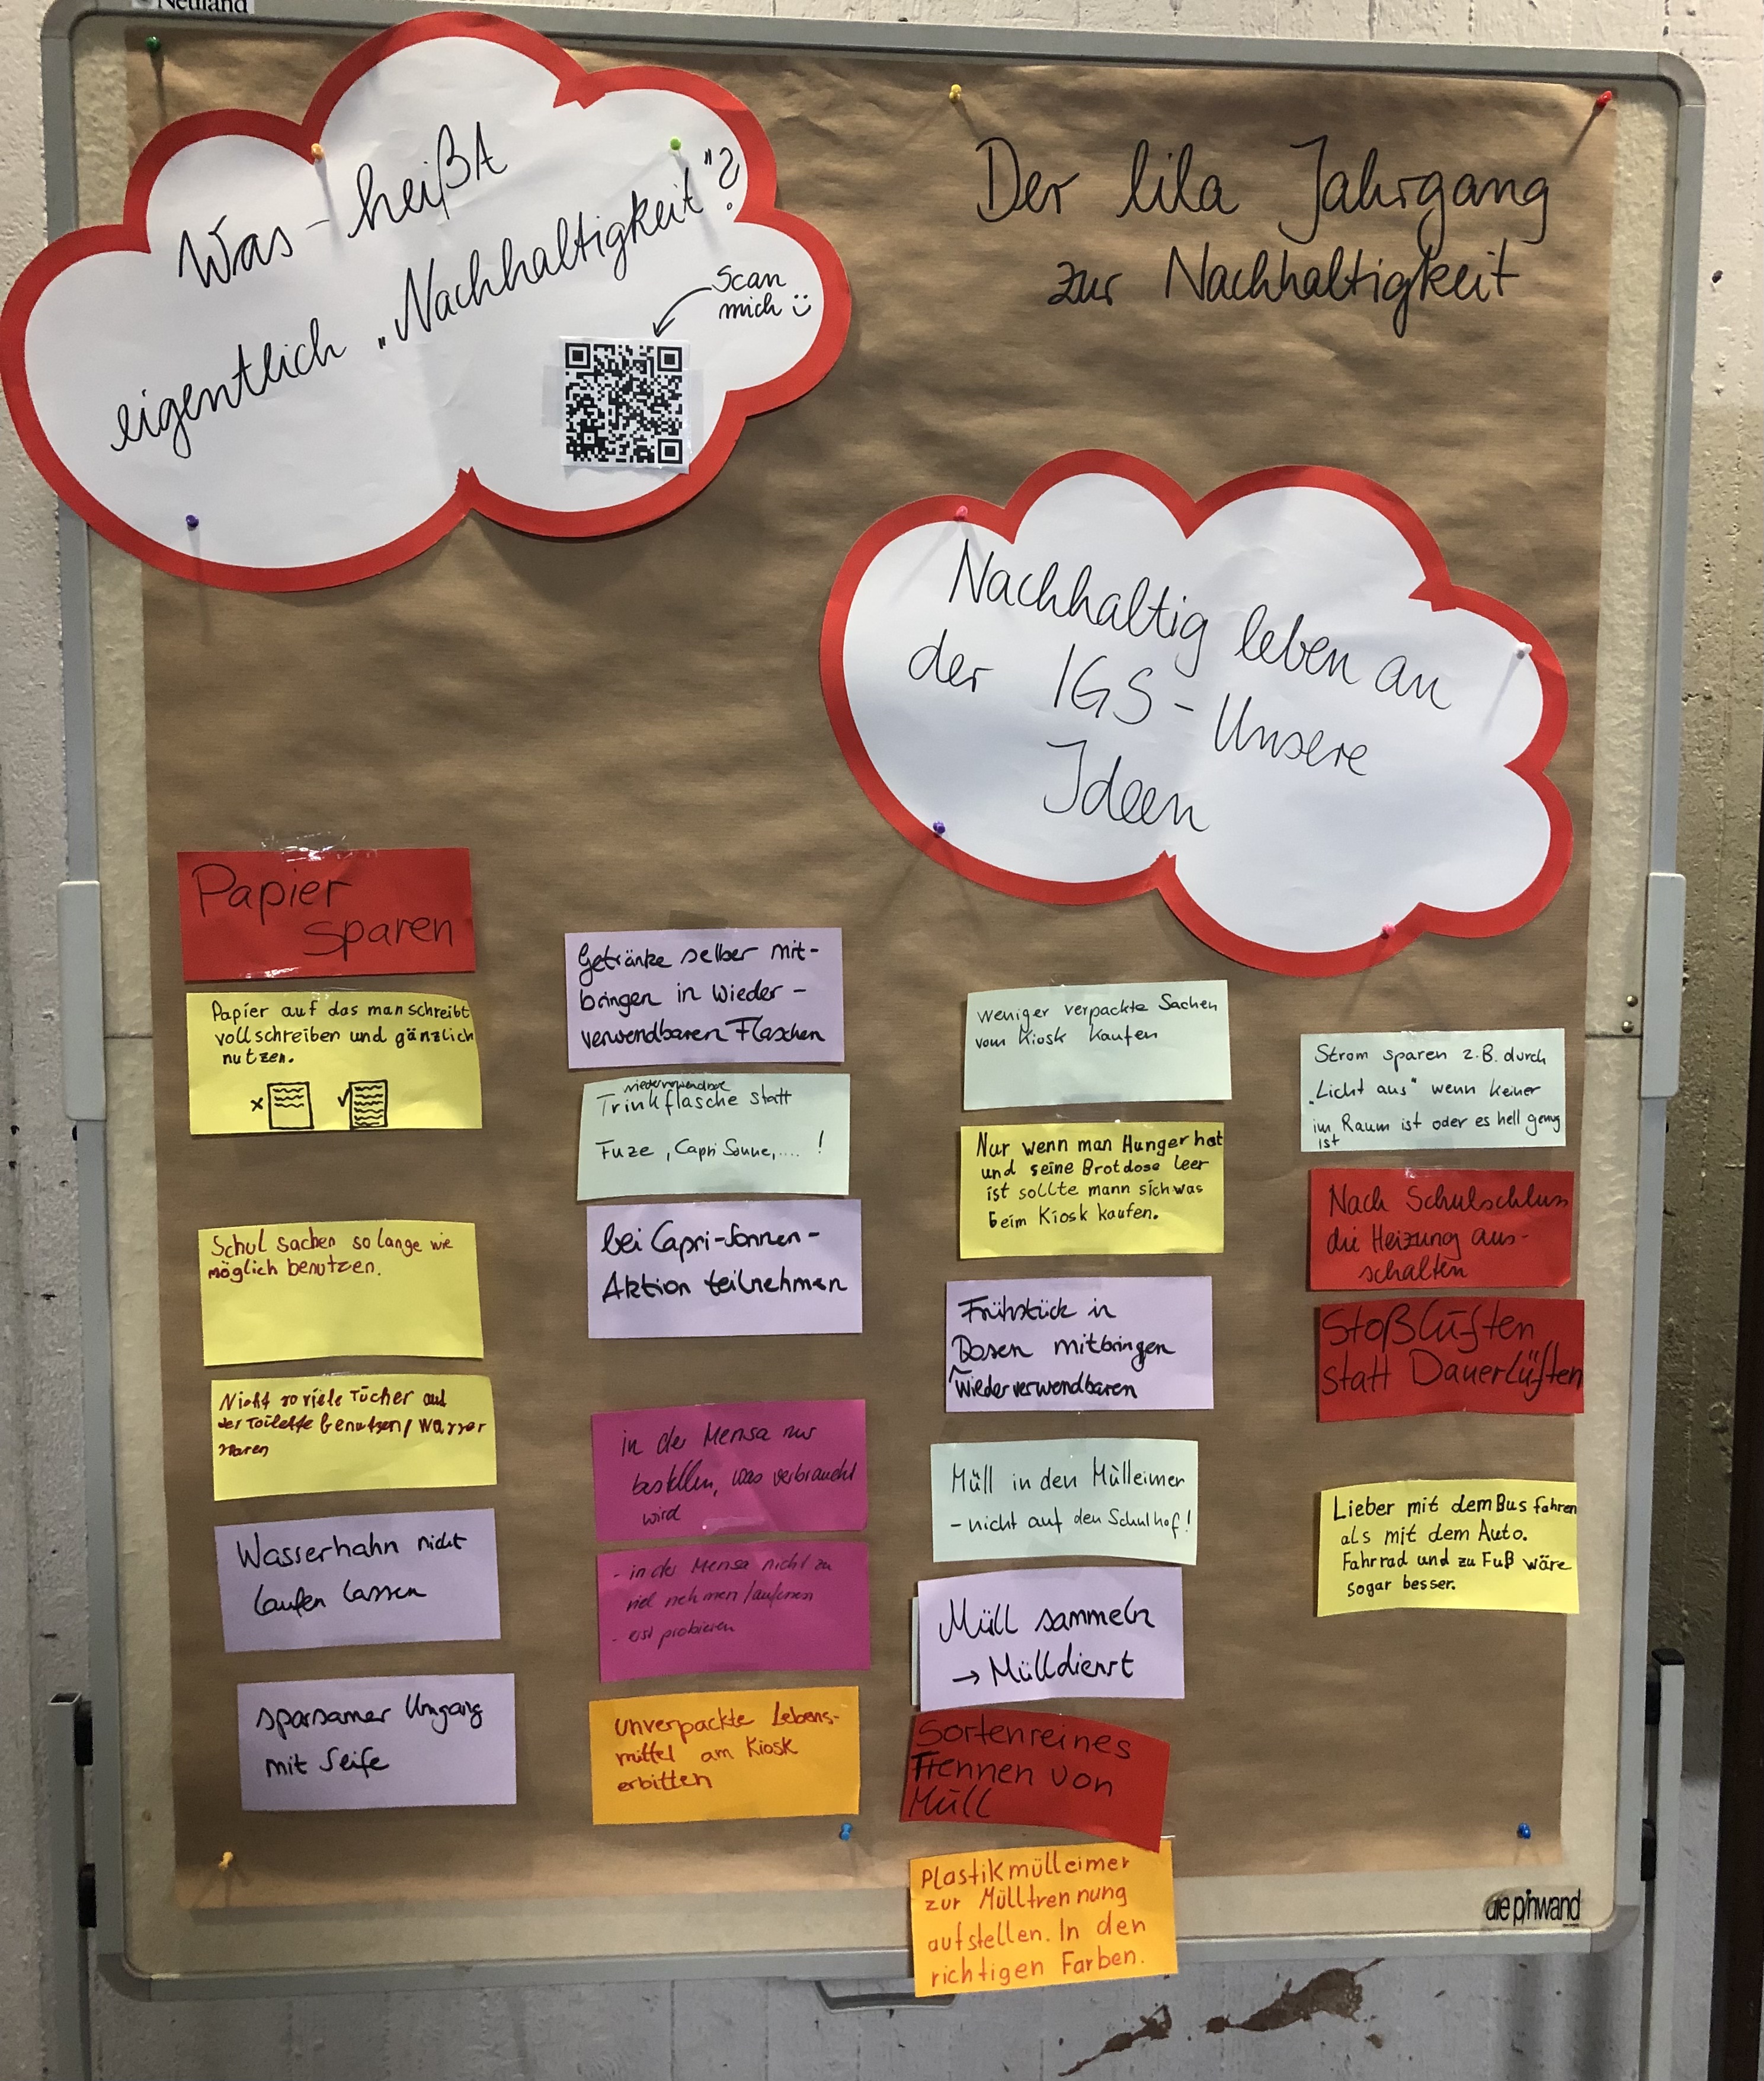 Neuland
Was heißt
eigentlich „Nachhaltigkeit"?
Scan
mich
Der lila Jahrgang
zur Nachhaltigkeit
Nachhaltig leben an
der IGS - Unsere
Ideen
Papier
sparen
Papier auf das man schreibt
vollschreiben und gänzlich
nutzen.
Schul sachen so lange wie
möglich benutzen.
Nicht so viele Tücher auf
der Toilette benutzen/Wasser
sparen
Wasserhahn nicht
laufen lassen
sparsamer Umgang
mit Seife
Getränke selber mit-
bringen in Wieder-
verwendbaren Flaschen
wiederverwendbare
Trinkflasche statt
Fuze, Capri Sonne,.... !
bei Capri-Sonnen-
Aktion teilnehmen
in der Mensa nur
bestellen, was verbraucht
wird
- in der Mensa nicht zu
viel nehmen /
- erst probieren
unverpackte Lebens-
mittel am Kiosk
erbitten
weniger verpackte Sachen
vom Kiosk kaufen
Nur wenn man Hunger hat
und seine Brotdose leer
ist sollte mann sich was
beim Kiosk kaufen.
Frühstück in
Dosen mitbringen
Wiederverwendbaren
Müll in den Mülleimer
- nicht auf den Schulhof!
Müll sammeln
→ Mülldienst
Sortenreines
Trennen von
Müll
Plastikmülleimer
zur Mülltrennung
aufstellen. In den
richtigen Farben.
Strom sparen z.B. durch
„Licht aus" wenn keiner
im Raum ist oder es hell genug
ist
Nach Schulschluss
die Heizung aus-
schalten
Stoßlüften
statt Dauerlüften
Lieber mit dem Bus fahren
als mit dem Auto.
Fahrrad und zu Fuß wäre
sogar besser.
die pinwand